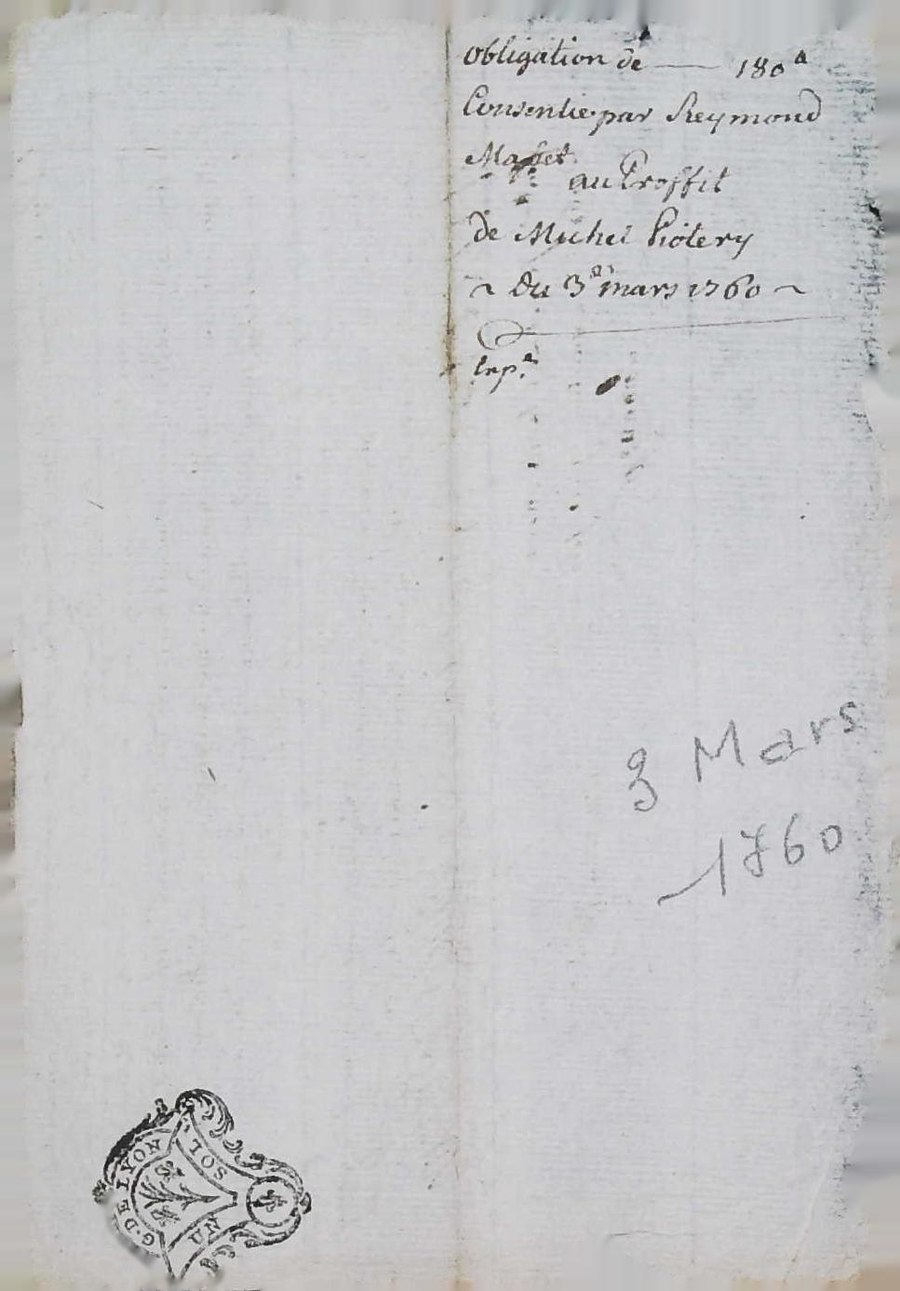 obligation de — 180ᵗᵗ
Consentie par Reymond
au Proffit
de Michel
~ Du 3e mars 1760 ~
Exp.e
3 Mars
1760
G. DE LYON
UN SOL